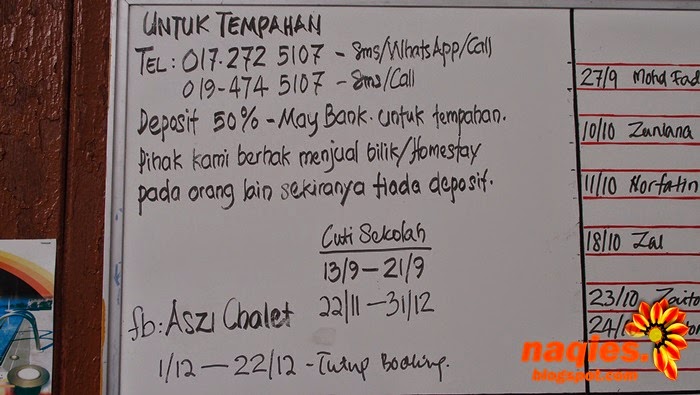 UNTUK TEMPAHAN
TEL: 017-272 5107 - Sms/WhatsApp/Call
019-474 5107 - Sms/Call
Deposit 50% - May Bank. untuk tempahan.
Pihak kami berhak menjual bilik/Homestay
pada orang lain sekiranya tiada deposit.
Cuti Sekolah
13/9 - 21/9
22/11 - 31/12
fb: Aszi Chalet
1/12 - 22/12 - Tutup Booking.
27/9 Mohd Fad
10/10
11/10 Norfatin
18/10
23/10
naqies.
blogspot.com